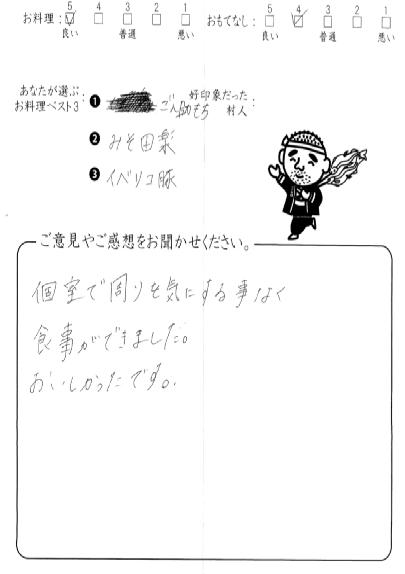 5 4 3 2 1 5 4 3 2 1
お料理: ☑ □ □ □ □ おもてなし: □ ☑ □ □ □
良い 普通 悪い 良い 普通 悪い
あなたが選ぶ お料理ベスト3: ❶ ごん助もち
好印象だった村人:
❷ みそ田楽
❸ イベリコ豚
ご意見やご感想をお聞かせください。
個室で周りを気にする事なく
食事ができました。
おいしかったです。